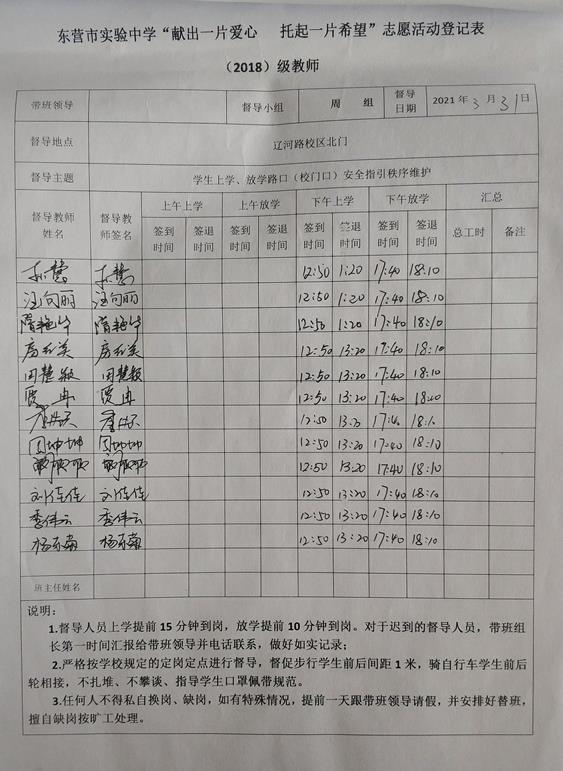 东营市实验中学“献出一片爱心 托起一片希望”志愿活动登记表
（2018）级教师
带班领导 督导小组 周 组 督导日期 2021年3月31日
督导地点 辽河路校区北门
督导主题 学生上学、放学路口（校门口）安全指引秩序维护
督导教师姓名 督导教师签名 上午上学 上午放学 下午上学 下午放学 汇总
签到时间 签退时间 签到时间 签退时间 签到时间 签退时间 签到时间 签退时间 总工时 备注
12:50 1:20 17:40 18:10
汪向丽 汪向丽 12:50 1:20 17:40 18:10
隋艳华 隋艳华 12:50 1:20 17:40 18:10
12:50 13:20 17:40 18:10
周慧敏 周慧敏 12:50 13:20 17:40 18:10
贾冉 贾冉 12:50 13:20 17:40
12:50 13:20 17:40 18:10
周坤坤 周坤坤 12:50 13:20 17:40 18:10
12:50 13:20 17:40 18:10
刘佳佳 刘佳佳 12:50 13:20 17:40 18:10
季伟云 季伟云 12:50 13:20 17:40 18:10
杨东菊 杨东菊 12:50 13:20 17:40 18:10
班主任姓名
说明：
1.督导人员上学提前15分钟到岗，放学提前10分钟到岗。对于迟到的督导人员，带班组
长第一时间汇报给带班领导并电话联系，做好如实记录；
2.严格按学校规定的定岗定点进行督导，督促步行学生前后间距1米，骑自行车学生前后
轮相接，不扎堆、不攀谈、指导学生口罩佩带规范。
3.任何人不得私自换岗、缺岗，如有特殊情况，提前一天跟带班领导请假，并安排好替班，
擅自缺岗按旷工处理。